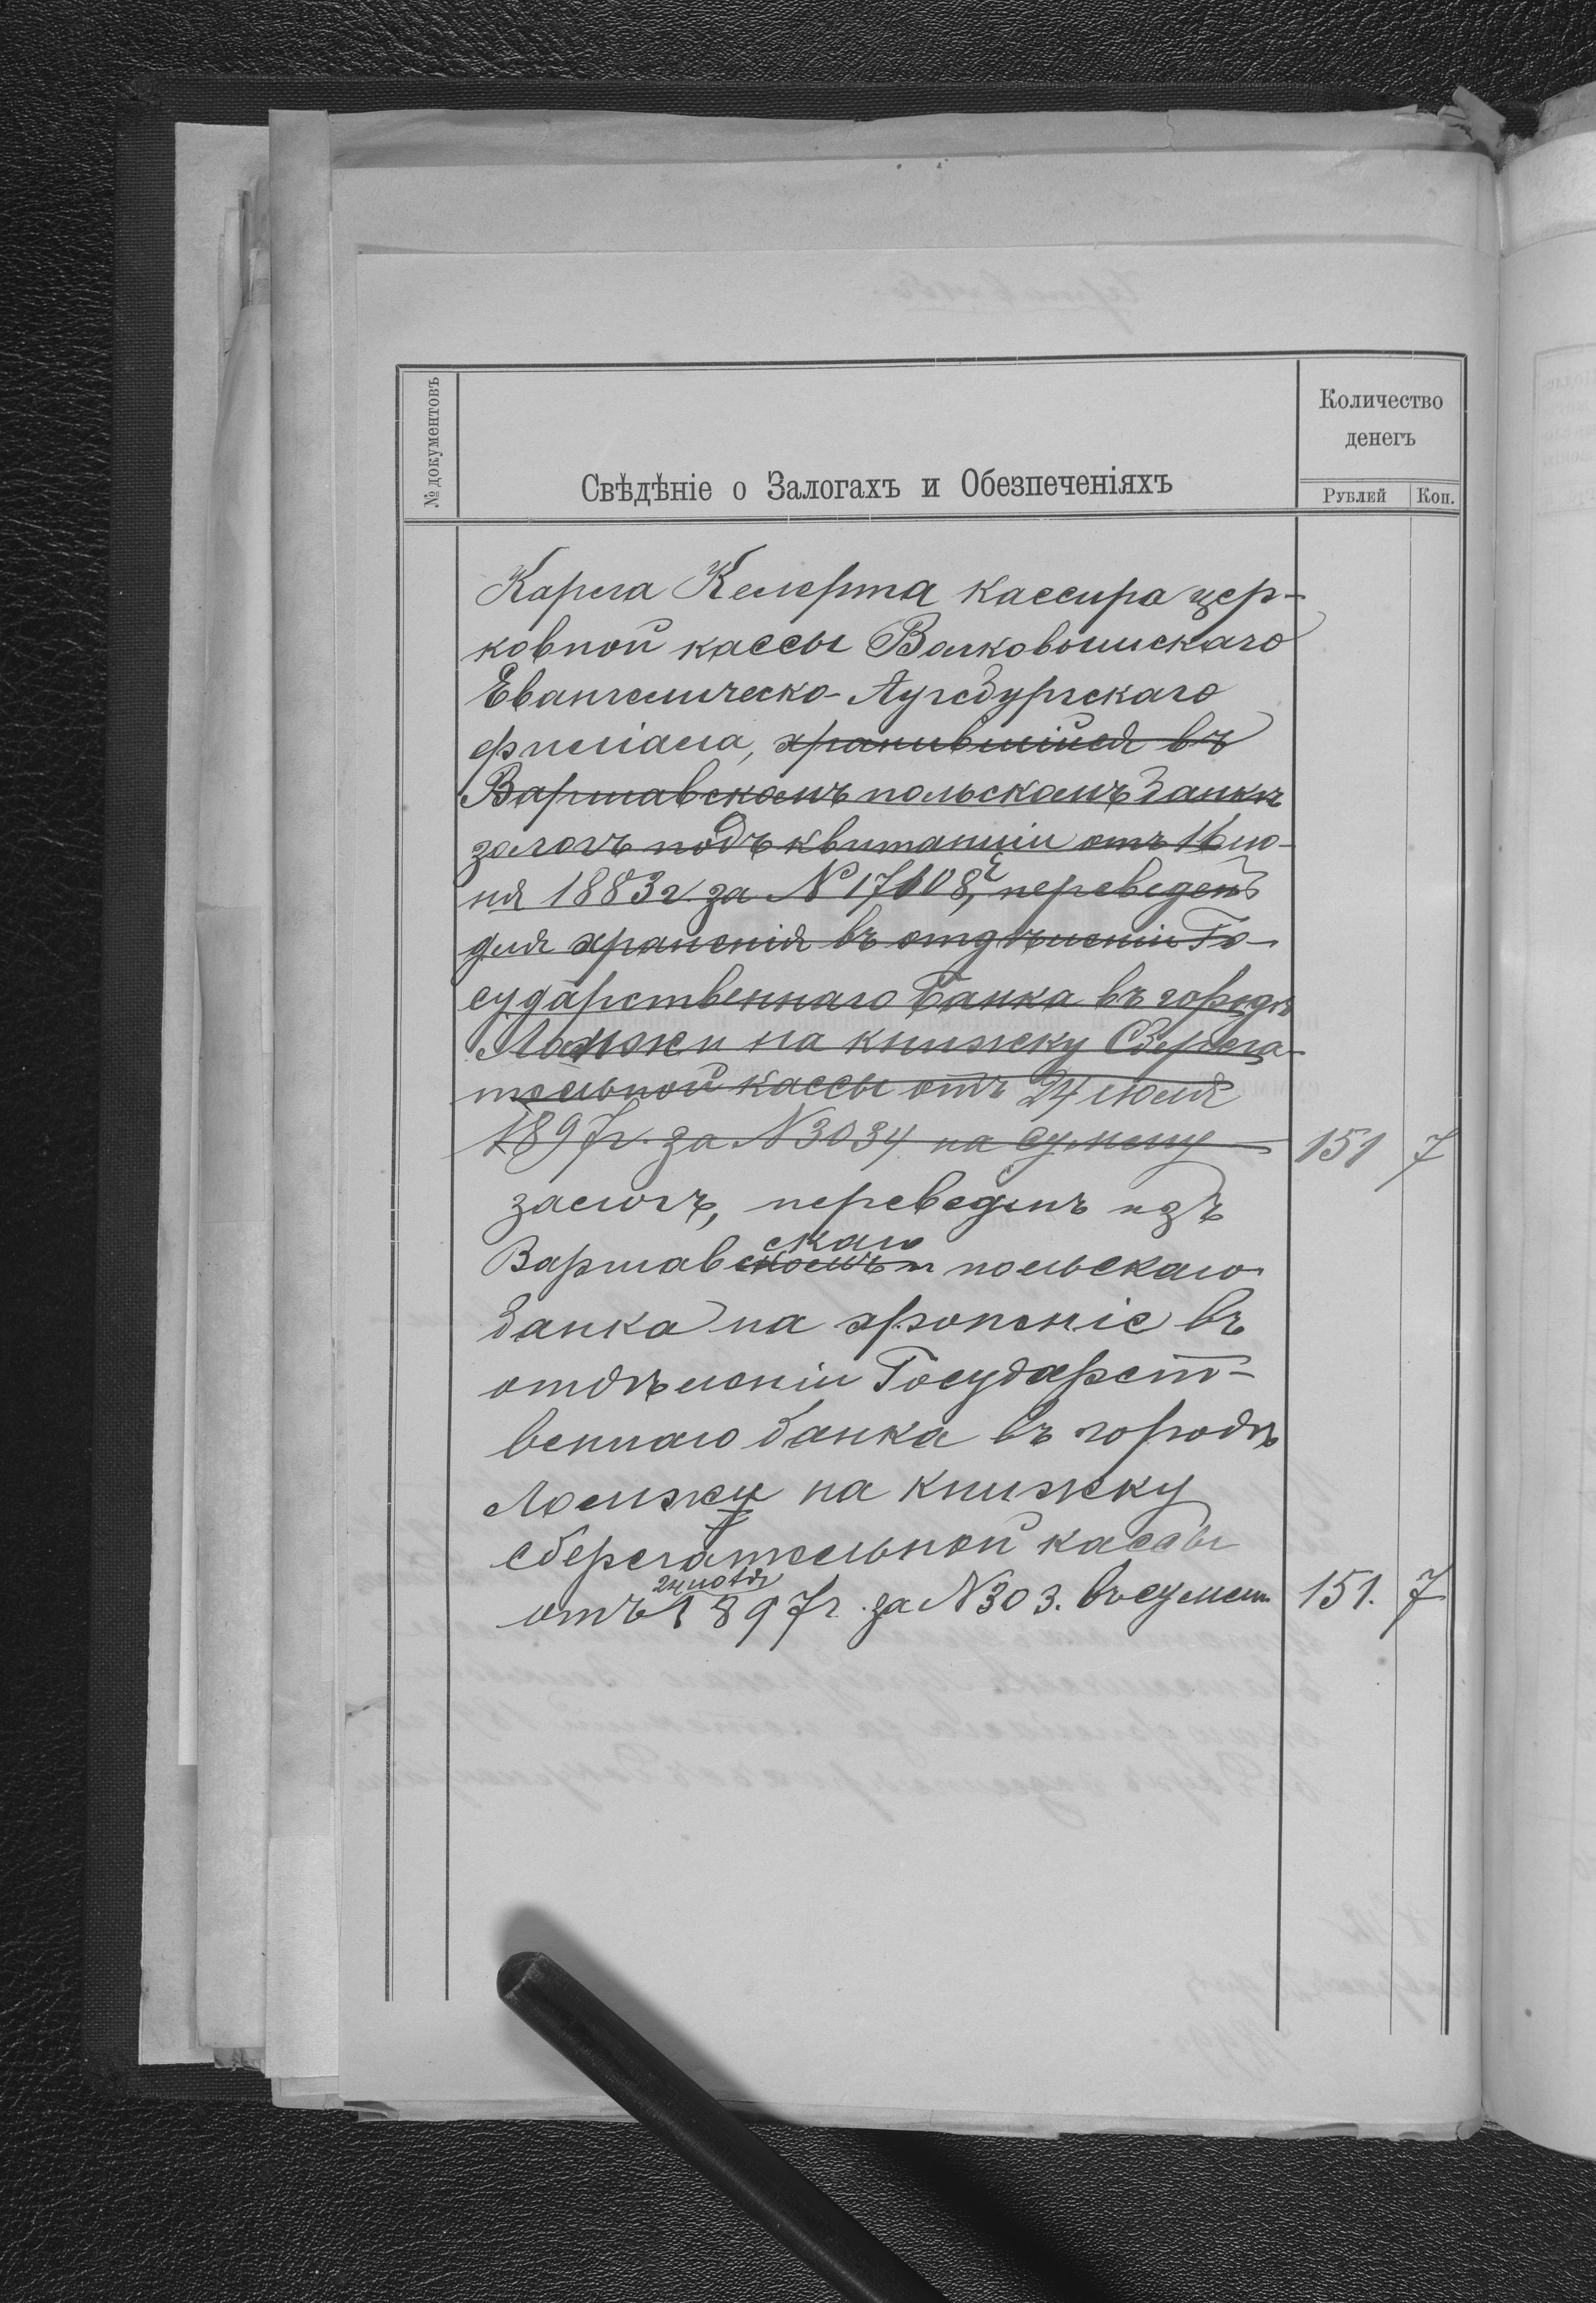 № документовъ
Свѣдѣніе о Залогахъ и Обезпеченіяхъ
Количество
денегъ
Рублей
Коп.
Карла Келерта кассира цер-
ковной кассы Волковышскаго
Евангелическо-Аугсбургскаго
филіала, хранившійся въ
Варшавскомъ польскомъ банкѣ
залогъ подъ квитанціи отъ 16 ію-
ня 1883 г. за № 17608, переведенъ
для храненія въ отдѣленіи Го-
сударственнаго Банка въ городѣ
Ломжи на книжку Сберега-
тельной кассы отъ 24 іюля
1897 г. за N 3034 на сумму 151 7
залогъ, переведенъ изъ
скаго
Варшавскомъ польскаго
банка на храненіе въ
отдѣленіи Государст-
веннаго банка въ городѣ
Ломжу на книжку
сберегательной кассы
24 іюля
отъ 1897 г. за N 303. въ сумм 151. 7